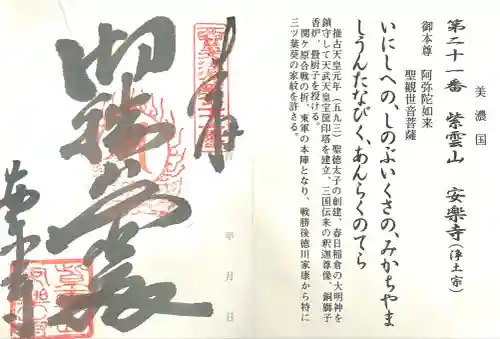 美濃国
第二十一番 紫雲山 安楽寺(浄土宗)
御本尊 阿弥陀如来
聖観世音菩薩
いにしへの、しのぶいくさの、みかちやま
しうんたなびく、あんらくのてら
推古天皇元年(五九三)聖徳太子の創建、春日稲倉の大明神を
鎮守して天武天皇宝篋印塔を建立、三国伝来の釈迦尊像、銅獅子
香炉、畳厨子を授ける。
関ケ原合戦の折、東軍の本陣となり、戦勝後徳川家康から特に
三ツ葉葵の家紋を許さる。
年 月 日
安楽寺